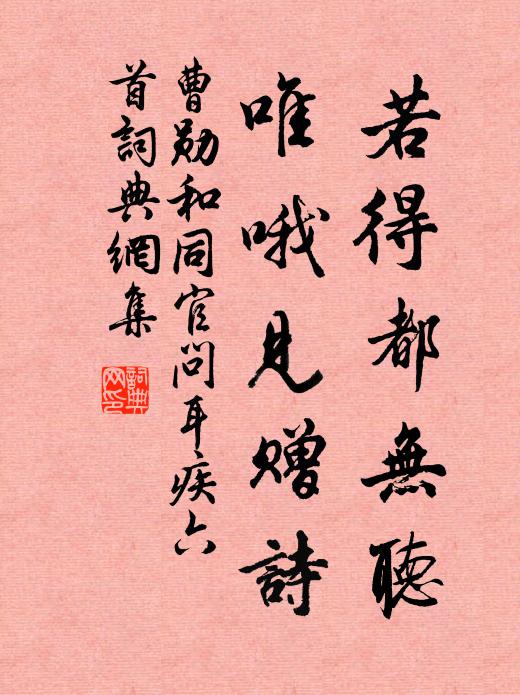 若得都無聽
唯哦見贈詩
曹勛和同官問耳疾六
首詞典網集
詞典
网印